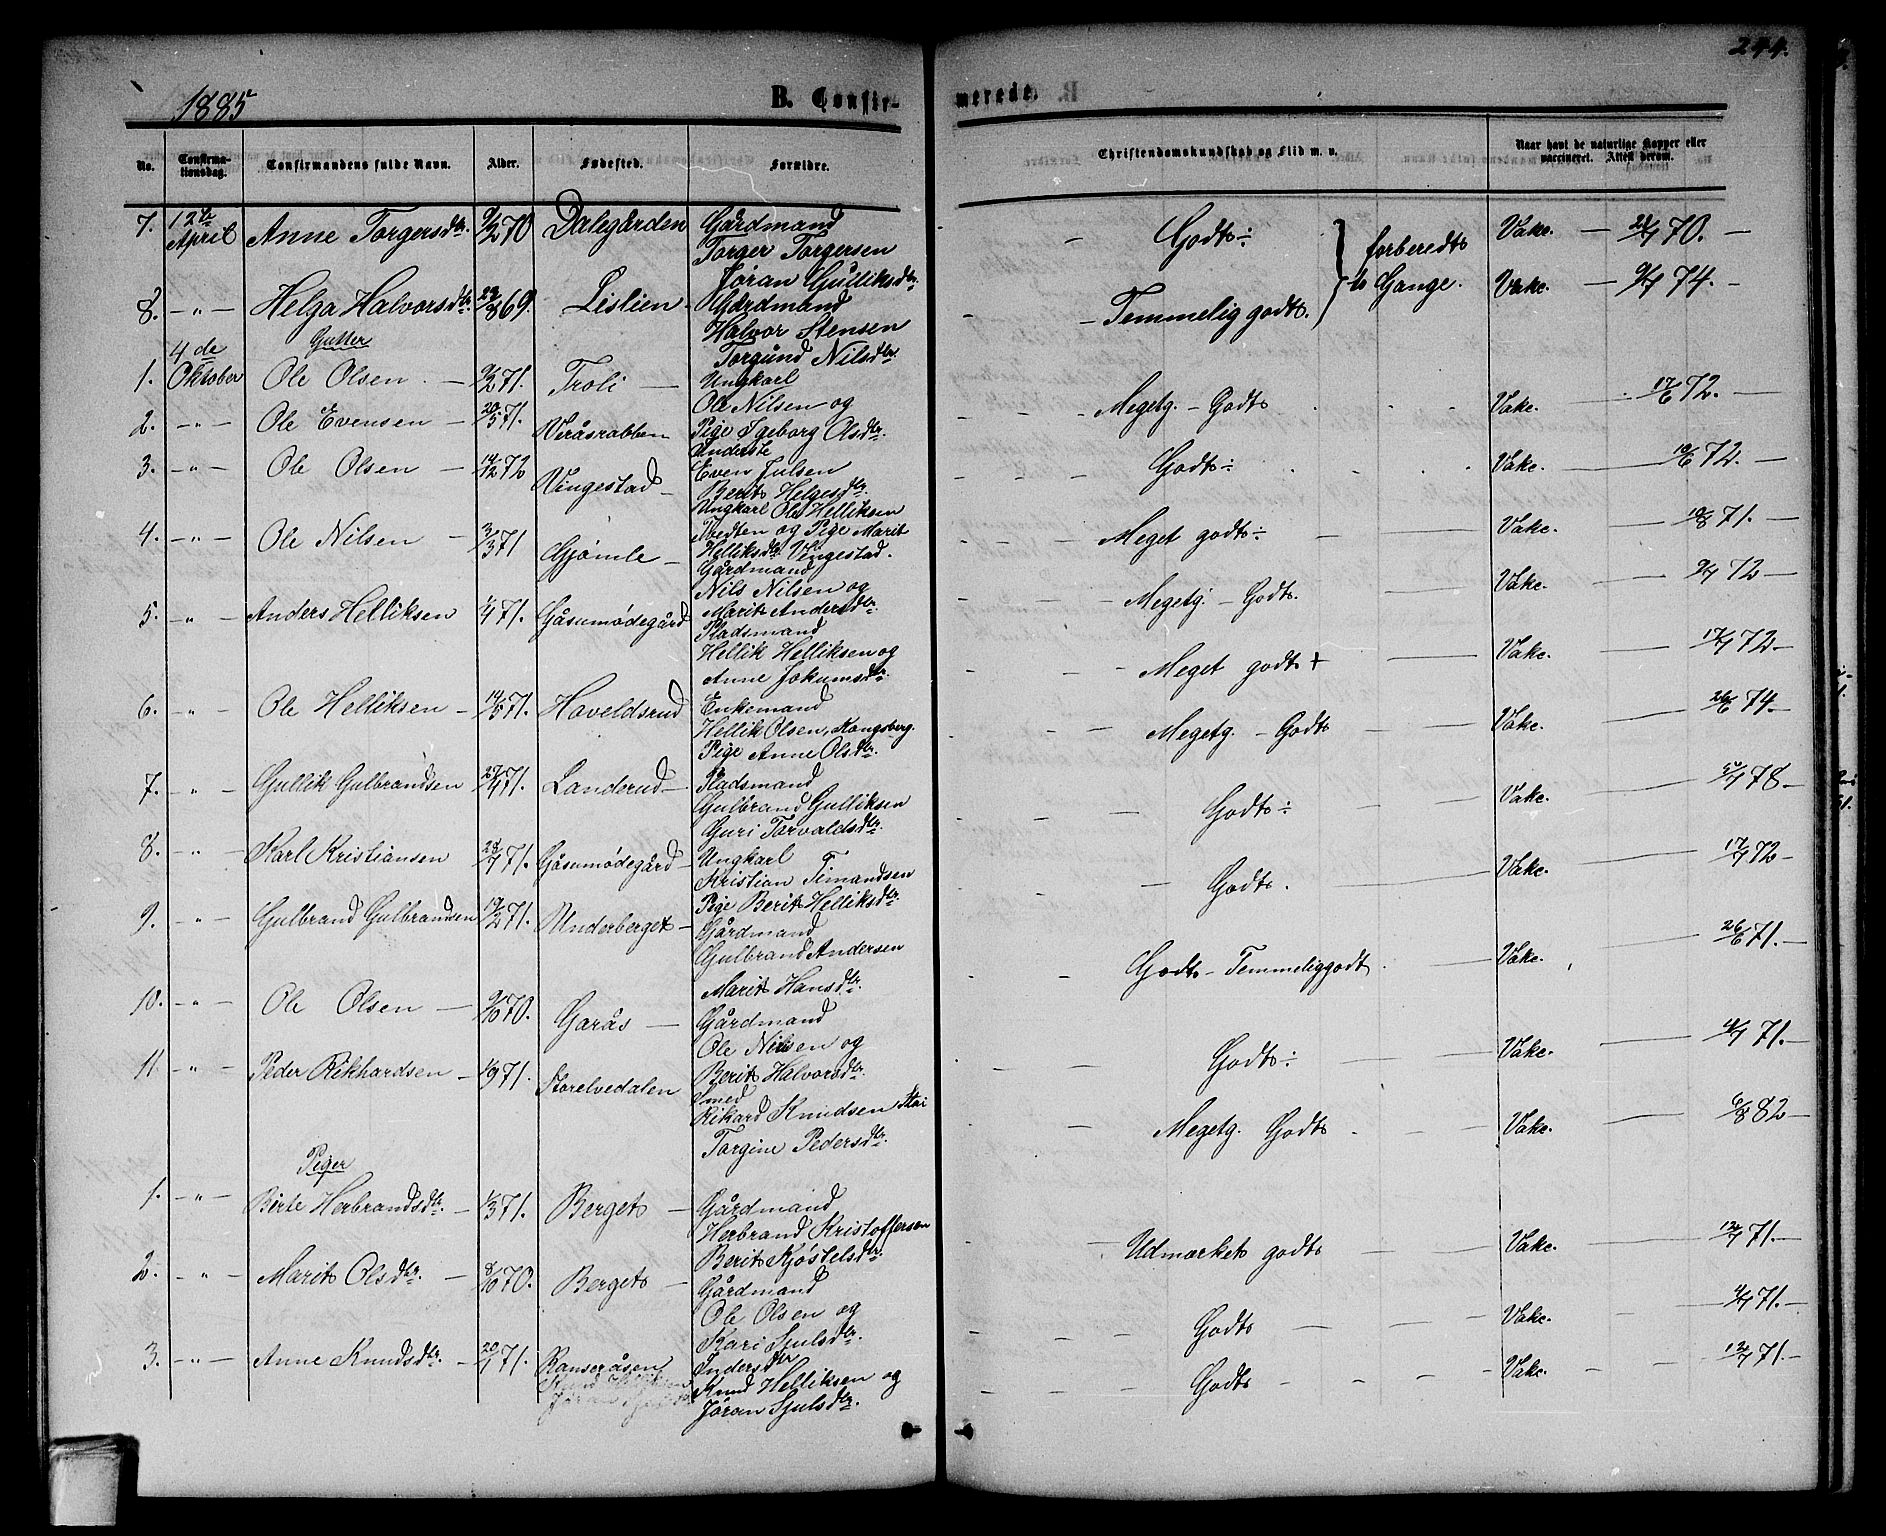 244.
1885
B. Confirmerede.
No. Confirmationsdag. Confirmandens fulde Navn. Alder. Fødested. Forældre. Christendomskundskab og Flid m. v. Naar havt de naturlige Kopper eller vaccineret. Attest derom.
7. 12te April Anne Torgersdtr. 9/2 70 Dalegården Gårdmand Torger Torgersen Jøran Gulliksdtr. Godt ÷ Vake. 70.
forberedt to Gange.
8. - " - Helga Halvorsdtr. 69. Lislien Gårdmand Halvor Stensen Torgund Nilsdtr. Temmelig godt. Vake. 74.
Gutter
1. 4de Oktober Ole Olsen. 71. Troli Ungkarl Ole Nilsen og Pige Igeborg Olsdtr. Megetg. - Godt Vake. 17/6 72.
2. - " - Ole Evensen 20/5 71. Veråsrabben Inderste Even Julsen Berit Helgesdtr. Godt ÷ Vake. 72.
3. - " - Ole Olsen 14/12 72 Vingestad Ungkarl Ole Helliksen Tvedten og Pige Marit Helliksdtr. Vingestad. Meget godt ÷ Vake. 71.
4. - " - Ole Nilsen 3/3 71 Gjømle Gårdmand Nils Nilsen og Marit Andersdtr. Megetg. - Godt. Vake. 72
5. - " - Anders Helliksen 71. Gåsumødegård Pladsmand Hellik Helliksen og Anne Jokumsdtr. Meget godt + Vake. 72
6. - " - Ole Helliksen 14/5 71. Haveldsrud Enkemand Hellik Olsen, Kongsberg. Pige Anne Olsdtr. Megetg. - Godt Vake. 26/6 74.
7. " Gullik Gulbrandsen 71. Landerud Pladsmand Gulbrand Gulliksen Guri Torvaldsdtr. Godt ÷ Vake. 78
8. " Karl Kristiansen 71. Gåsumødegård Ungkarl Kristian Timandsen Pige Berit Helliksdtr. Godt. Vake. 72
9. " Gulbrand Gulbrandsen 71. Underberget Gårdmand Gulbrand Andersen Marit Hansdtr. Godt - Temmeliggodt Vake. 26/6 71.
10. - " - Ole Olsen 9/10 70. Garås Gårdmand Ole Nilsen og Berit Halvorsdtr. Godt ÷ Vake. 71.
11. - " - Peder Rikhardsen 71. Storelvedalen Smed Rikard Knudsen Stai Torgine Pedersdtr. Megetg. Godt Vake. 6/8 82
Piger
1. - " - Birte Herbrandsdtr. 71. Berget Gårdmand Herbrand Kristoffersen Berit Kjøstelsdtr. Udmærket godt Vake. 71.
2. - " - Marit Olsdtr. 8/10 70. Berget Gårdmand Ole Olsen og Kari Sjulsdtr. Godt Vake. 71.
3. - " - Anne Knudsdtr. 71. Ranseråsen Inderst Knud Helliksen og Jøran Sjulsdtr. Godt Vake. 71.